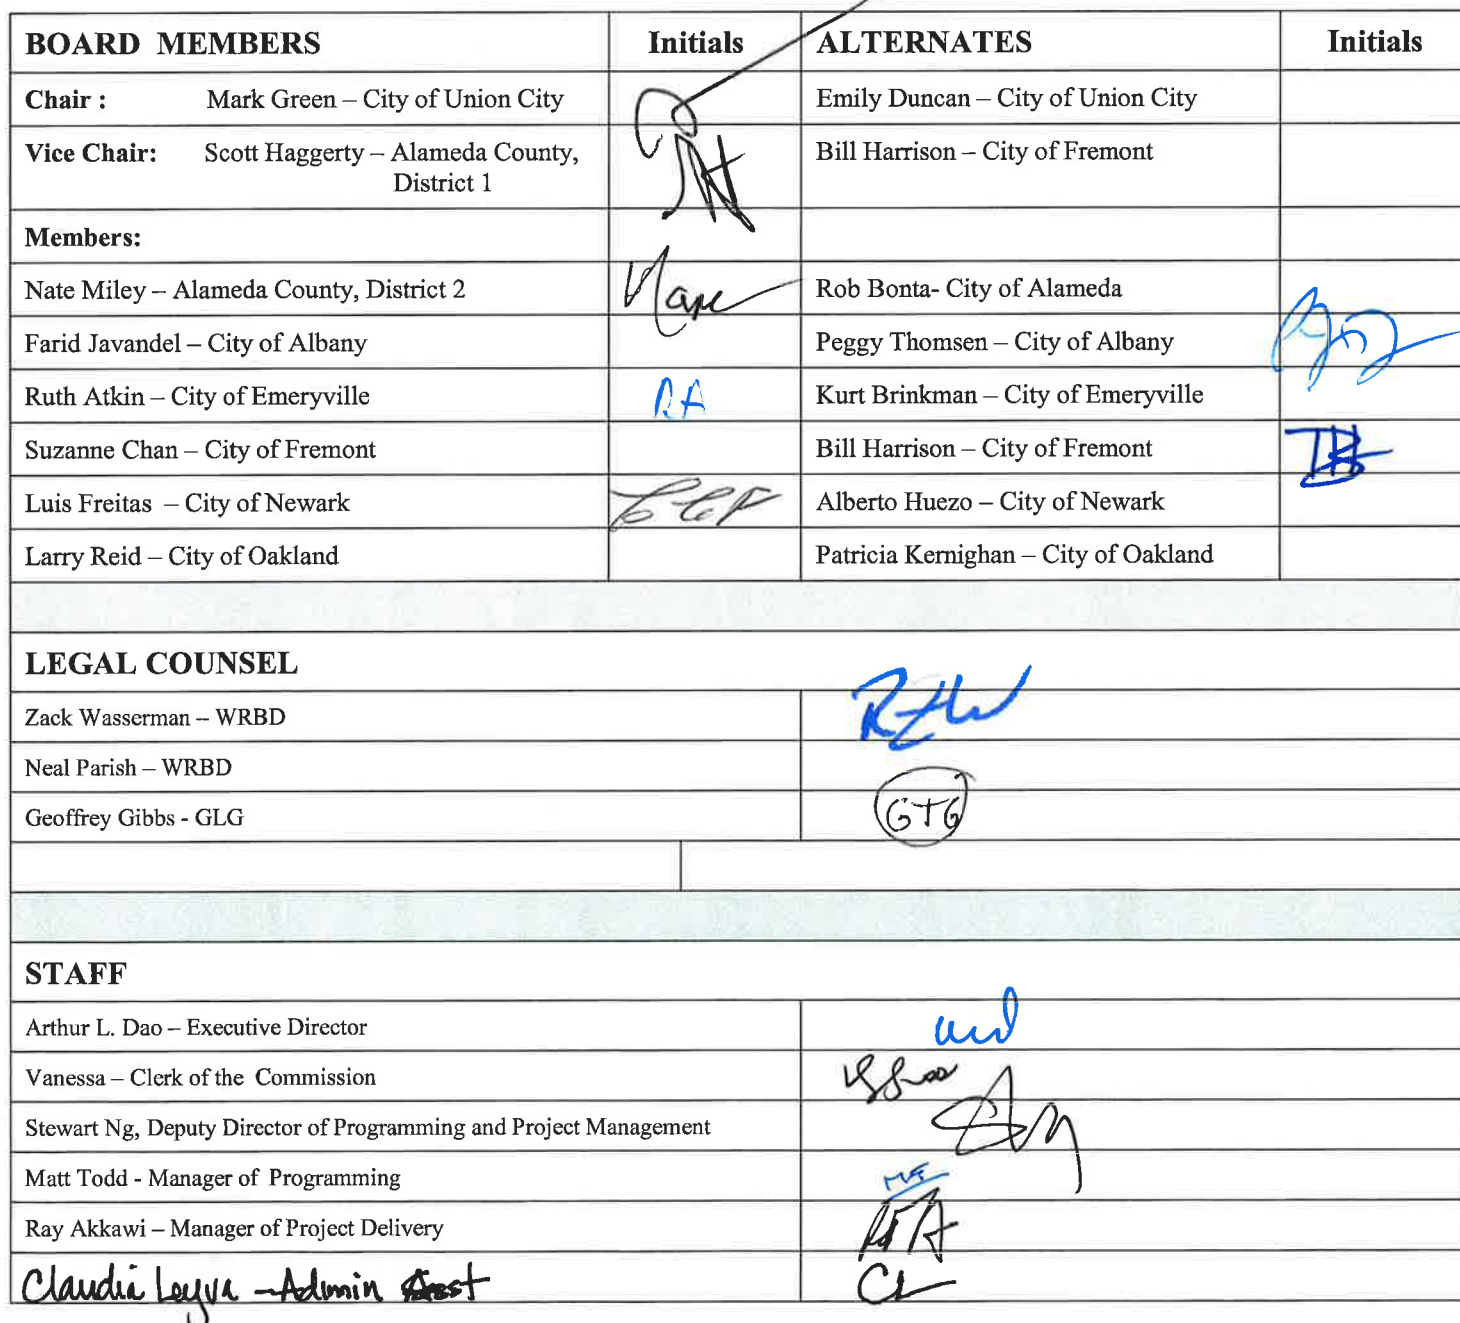 BOARD MEMBERS Initials ALTERNATES Initials
Chair : Mark Green – City of Union City Emily Duncan – City of Union City
Vice Chair: Scott Haggerty – Alameda County, Bill Harrison – City of Fremont
District 1
Members:
Nate Miley – Alameda County, District 2 Rob Bonta- City of Alameda
Farid Javandel – City of Albany Peggy Thomsen – City of Albany
Ruth Atkin – City of Emeryville RA Kurt Brinkman – City of Emeryville
Suzanne Chan – City of Fremont Bill Harrison – City of Fremont
Luis Freitas – City of Newark Alberto Huezo – City of Newark
Larry Reid – City of Oakland Patricia Kernighan – City of Oakland
LEGAL COUNSEL
Zack Wasserman – WRBD RZW
Neal Parish – WRBD
Geoffrey Gibbs - GLG GTG
STAFF
Arthur L. Dao – Executive Director
Vanessa – Clerk of the Commission
Stewart Ng, Deputy Director of Programming and Project Management
Matt Todd - Manager of Programming
Ray Akkawi – Manager of Project Delivery
Claudia Leyva – Admin Asst CL